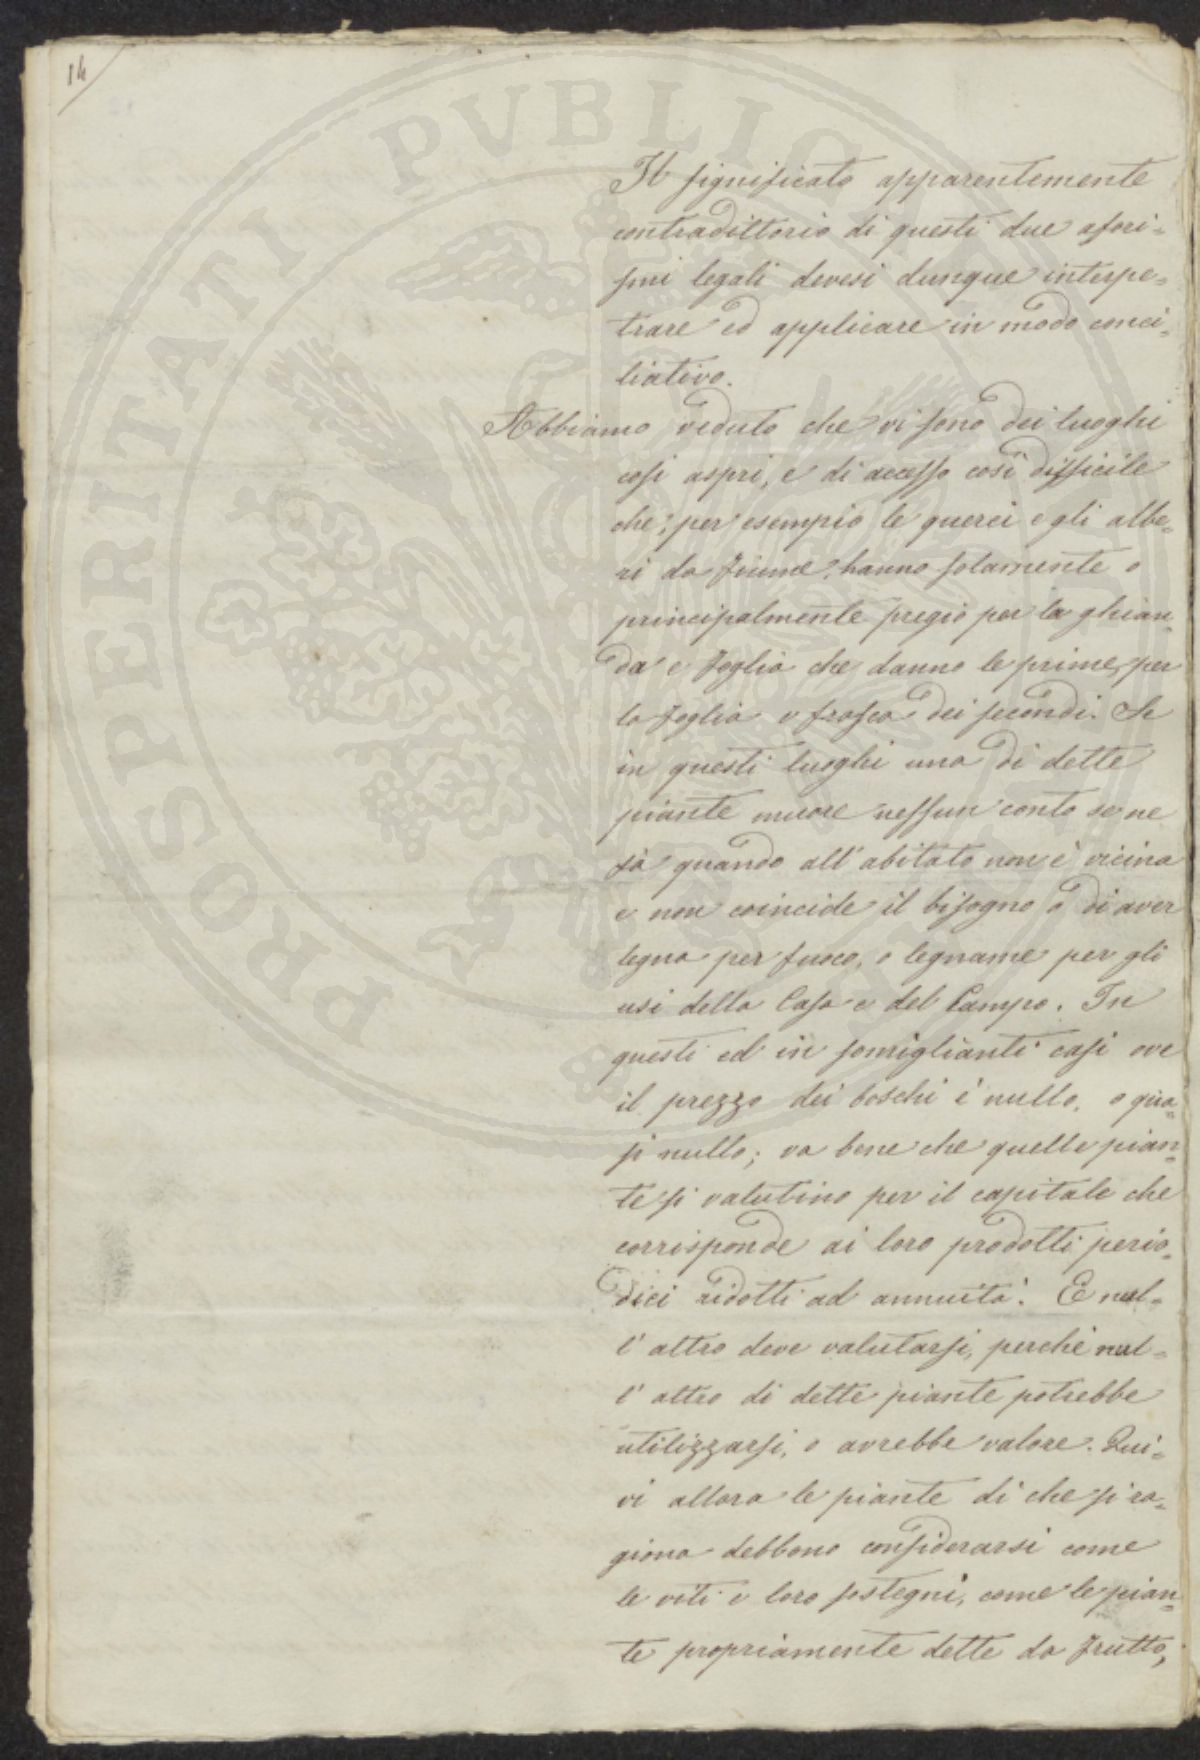 14
PROSPERITATI PVBLICAE
Il significato apparentemente
contradittorio di questi due afori-
smi legali devesi dunque interpe-
trare ed applicare in modo conci-
liativo.
Abbiamo veduto che vi sono dei luoghi
così aspri, e di accesso così difficile
che, per esempio le querci e gli albe-
ri da fiume, hanno solamente o
principalmente pregio per la ghian-
da e foglia che danno le prime, per
la foglia o frasca dei secondi. Se
in questi luoghi una di dette
piante muore nessun conto se ne
fà quando all'abitato non è vicina
e non coincide il bisogno o di aver
legna per fuoco, o legname per gli
usi della Casa e del Campo. In
questi ed in somiglianti casi ove
il prezzo dei boschi è nullo, o qua-
si nullo; va bene che quelle pian-
te si valutino per il capitale che
corrisponde ai loro prodotti perio-
dici ridotti ad annuità. E nul-
l'altro deve valutarsi, perchè nul-
l'altro di dette piante potrebbe
utilizzarsi, o avrebbe valore. Qui-
vi allora le piante di che si ra-
giona debbono considerarsi come
le viti e loro sostegni, come le pian-
te propriamente dette da frutto,